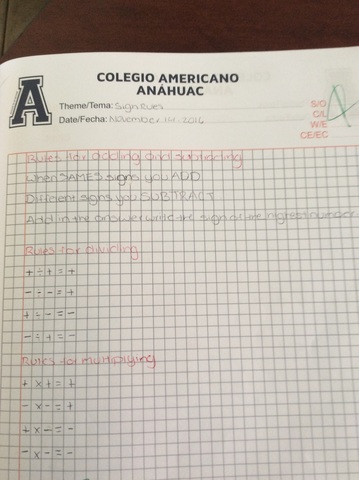 COLEGIO AMERICANO
ANÁHUAC
A
Theme/Tema: Sign Rules
Date/Fecha: November 14, 2016
S/O
C/L
W/E
CE/EC
A
Rules for adding and subtracting
When SAMES signs you ADD
Different signs you SUBTRACT
Add in the answer write the sign of the highest number
Rules for dividing
+ ÷ + = +
- ÷ - = +
+ ÷ - = -
- ÷ + = -
Rules for multiplying
+ x + = +
- x - = +
+ x - = -
- x - = -